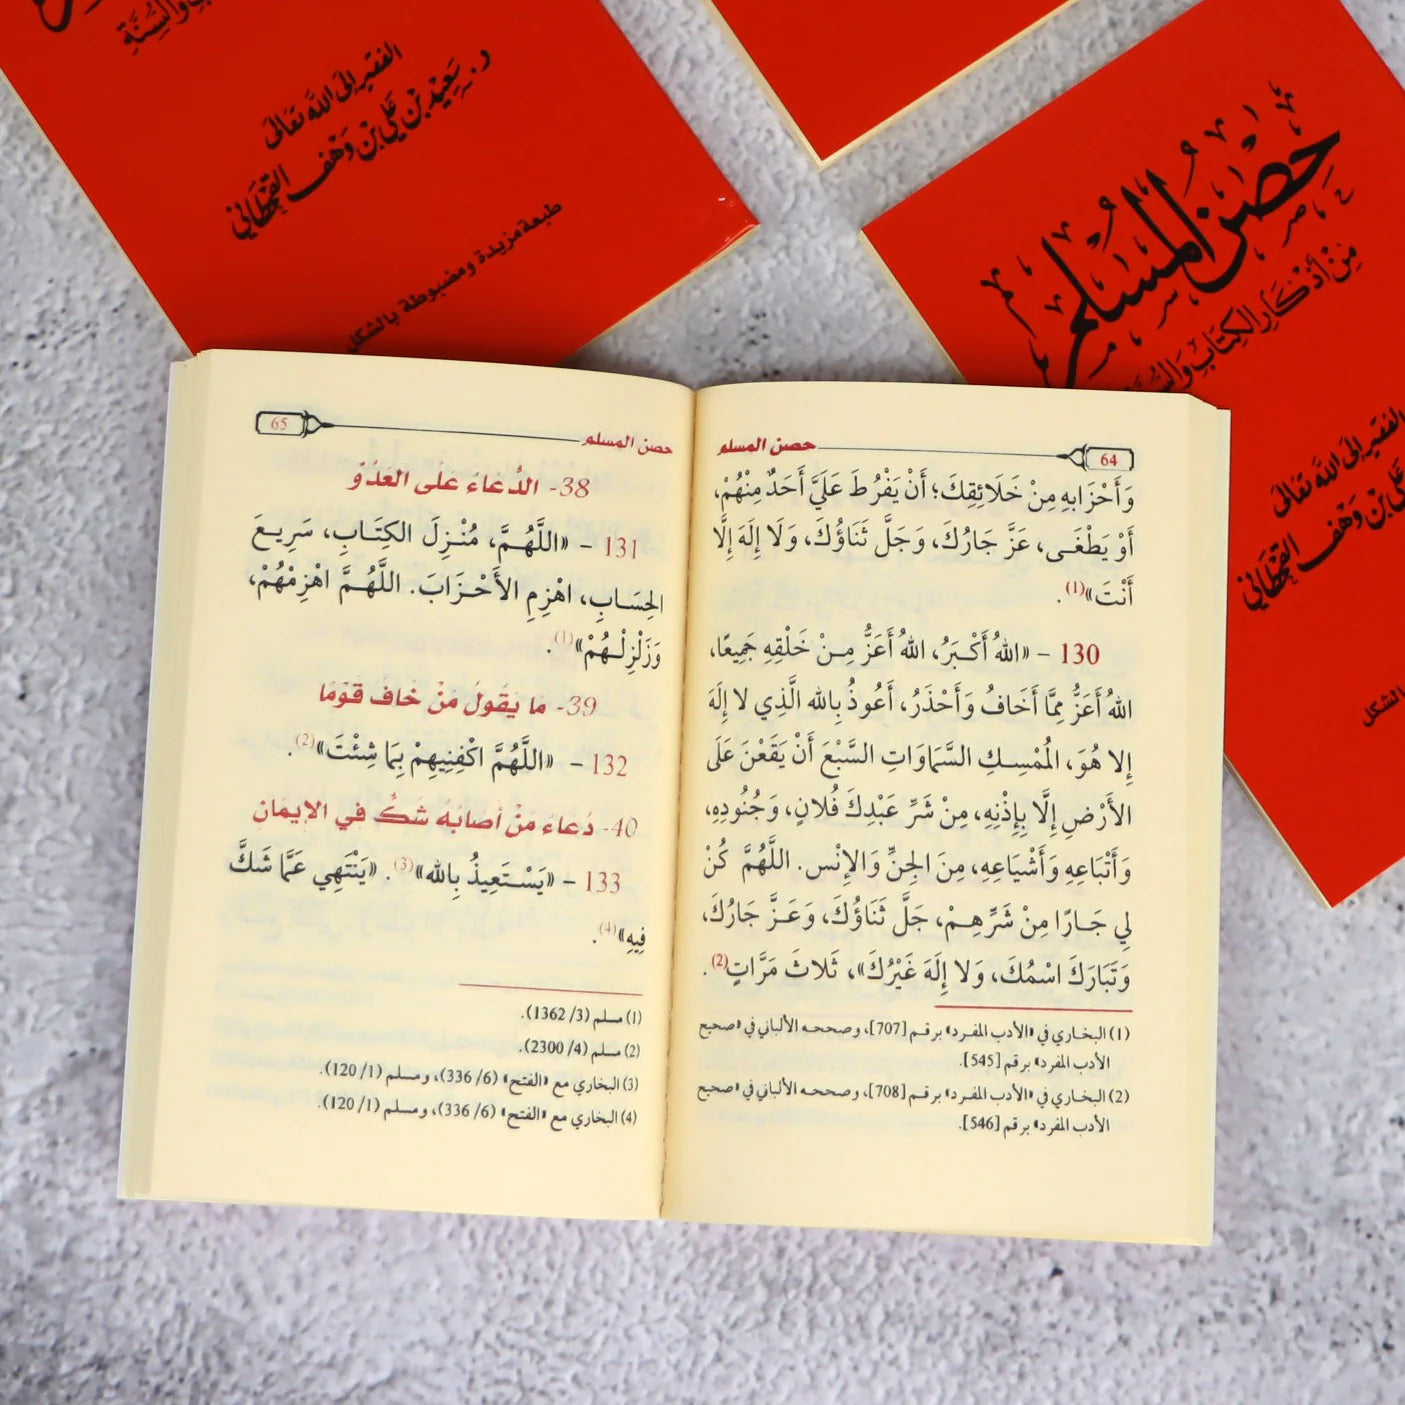 والسُّنَّةِ
الفقير إلى الله تعالى
د. سَعِيْد بْن عَلي بْن وَهْف القحطاني
طبعة مزيدة ومضبوطة بالشكل
حصن المسلم
مِنْ أَذْكَارِ الكِتَابِ وَالسُّنَّ
الفقير إلى الله تعالى
عَلي بْن وَهْف القحطاني
بالشكل
حصن المسلم 64
وَأَحْزَابِهِ مِنْ خَلَائِقِكَ؛ أَنْ يَفْرُطَ عَلَيَّ أَحَدٌ مِنْهُمْ،
أَوْ يَطْغَى، عَزَّ جَارُكَ، وَجَلَّ ثَنَاؤُكَ، وَلَا إِلَهَ إِلَّا
أَنْتَ»(1).
130 – «اللهُ أَكْبَرُ، اللهُ أَعَزُّ مِنْ خَلْقِهِ جَمِيعًا،
اللهُ أَعَزُّ مِمَّا أَخَافُ وَأَحْذَرُ، أَعُوذُ بِالله الَّذِي لا إِلَهَ
إِلا هُوَ، الُمْمْسِكِ السَّمَاوَاتِ السَّبْعَ أَنْ يَقَعْنَ عَلَى
الأَرْضِ إِلَّا بِإِذْنِهِ، مِنْ شَرِّ عَبْدِكَ فُلانٍ، وَجُنُودِهِ،
وَأَتْبَاعِهِ وَأَشْيَاعِهِ، مِنَ الجِنِّ وَالإِنْس. اللَّهُمَّ كُنْ
لِي جَارًا مِنْ شَرِّهِمْ، جَلَّ ثَنَاؤُكَ، وَعَزَّ جَارُكَ،
وَتَبَارَكَ اسْمُكَ، وَلا إِلَهَ غَيْرُكَ»، ثَلاثَ مَرَّاتٍ(2).
(1) البخاري في «الأدب المفرد» برقم [707]، وصححه الألباني في «صحيح
الأدب المفرد» برقم [545].
(2) البخاري في «الأدب المفرد» برقم [708]، وصححه الألباني في «صحيح
الأدب المفرد» برقم [546].
حصن المسلم 65
38- الدُّعَاءُ عَلَى العَدُوّ
131 – «اللَّهُمَّ، مُنْزِلَ الكِتَابِ، سَرِيعَ
الحِسَابِ، اهْزِمِ الأَحْزَابَ. اللَّهُمَّ اهْزِمْهُمْ،
وَزَلْزِلْهُمْ»(1).
39- مَا يَقُولُ مَنْ خَافَ قَوْمًا
132 – «اللَّهُمَّ اكْفِنِيهِمْ بِمَا شِئْتَ»(2).
40- دُعَاءُ مَنْ أَصَابَهُ شَكٌّ في الإيمَانِ
133 – «يَسْتَعِيذُ بِالله»(3). «يَنْتَهِي عَمَّا شَكَّ
فِيهِ»(4).
(1) مسلم (3/ 1362).
(2) مسلم (4/ 2300).
(3) البخاري مع «الفتح» (6/ 336)، ومسلم (1/ 120).
(4) البخاري مع «الفتح» (6/ 336)، ومسلم (1/ 120).